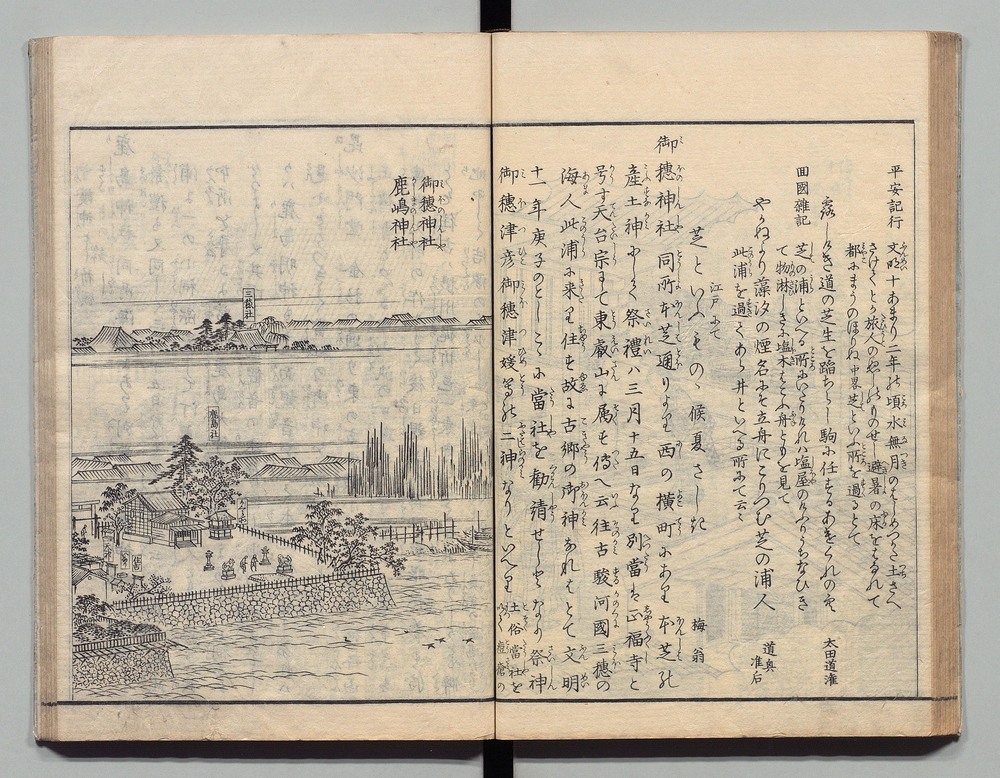 平安記行
文明十あまり二年の頃水無月のはしめつかた土さへ
さけてとか旅人の
避暑の床をはなれて
都にまうのほりね
芝といふ所を過るとて
露しけき道の芝生を踏ちらし駒に任するあけくれのそら
太田道灌
回國雜記
芝の浦といへる所にいたりけれは塩屋のけふりうちなひき
て物淋しきに塩木はこふ舟ともを見て
やかぬより藻汐の煙名にそ立舟にこりつむ芝の浦人
道奥
准后
此浦を過てあら井といへる所にて云々
江戸にて
芝といふものゝ候夏さしき
梅翁
御穗神社
同所本芝通りより西の横町にあり本芝の
産土神にして祭禮ハ三月十五日なり別當を正福寺と
号す天台宗にて東叡山に属す傳へ云往古駿河國三穗の
海人此浦に来り住を故に古郷の御神なれはとて文明
十一年庚子のとしこゝに當社を勸請せしとなり祭神
御穗津彦御穗津媛等の二神なりといへり
土俗當社を
御穗神社
鹿嶋神社
鹿島社